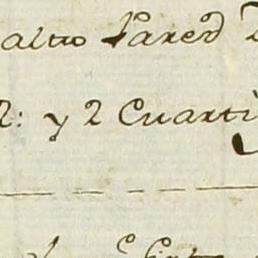 alto Pared
2: y 2 Cuarti